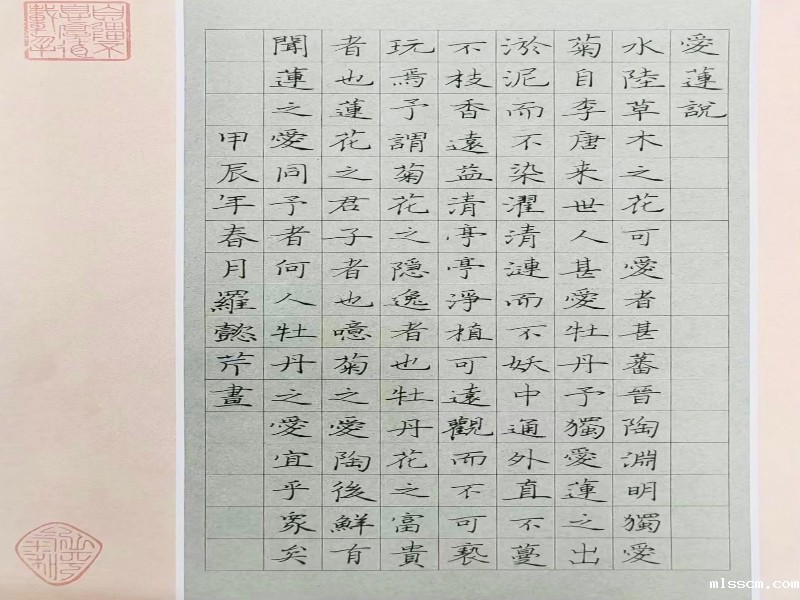 愛蓮說
水陸草木之花可愛者甚蕃晉陶淵明獨愛
菊自李唐来世人甚愛牡丹予獨愛蓮之出
淤泥而不染濯清漣而不妖中通外直不蔓
不枝香遠益清亭亭淨植可遠觀而不可褻
玩焉予謂菊花之隱逸者也牡丹花之富貴
者也蓮花之君子者也噫菊之愛陶後鮮有
聞蓮之愛同予者何人牡丹之愛宜乎衆矣
甲辰年春月羅懿芹畫
mlsscm.com